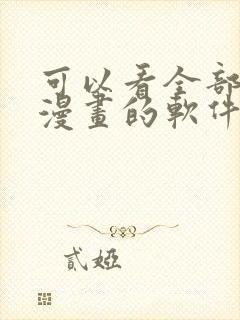 可以看全部
漫畫的軟件
貳婭